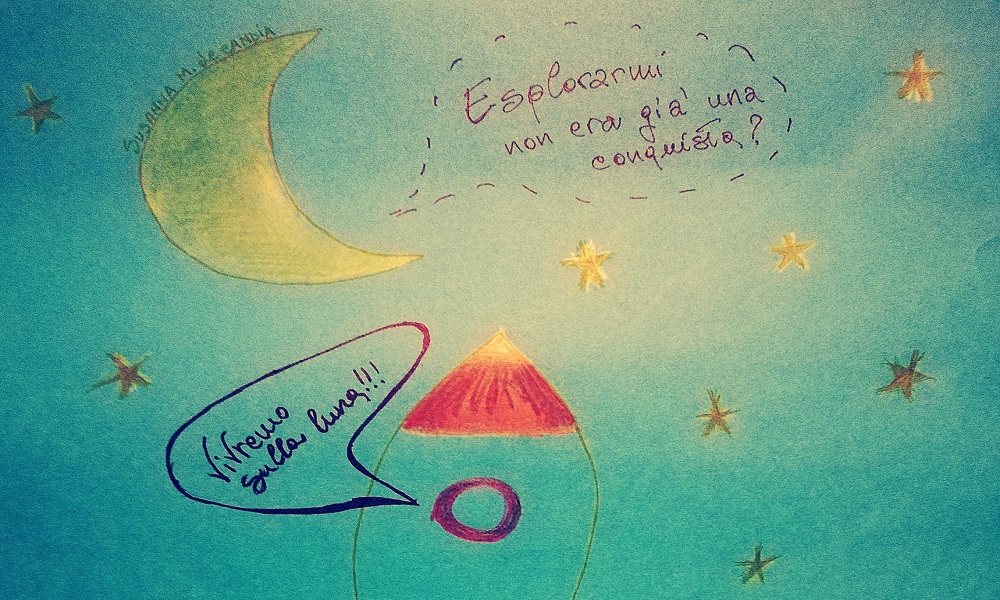 SUSANNA M. de CANDIA
Esplorarmi
non era già una
conquista?
Vivremo
sulla luna!!!